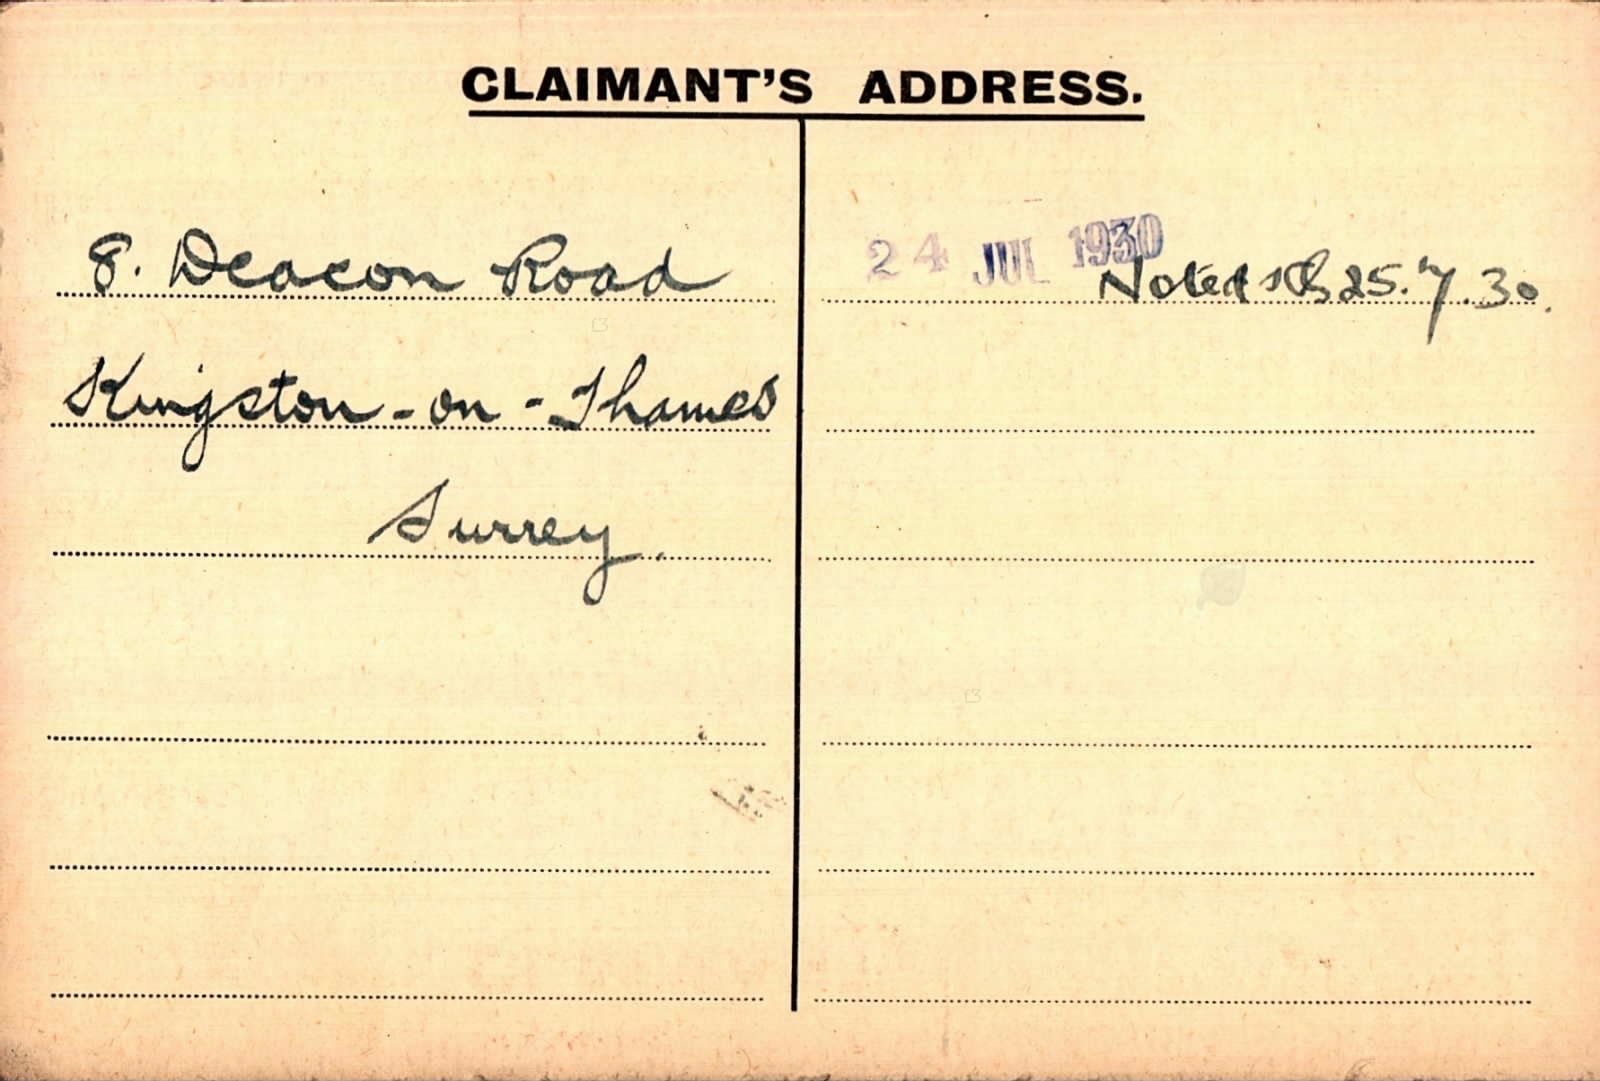 CLAIMANT'S ADDRESS.
8. Deacon Road
Kingston-on-Thames
Surrey.
24 JUL 1930
Noted 25.7.30.